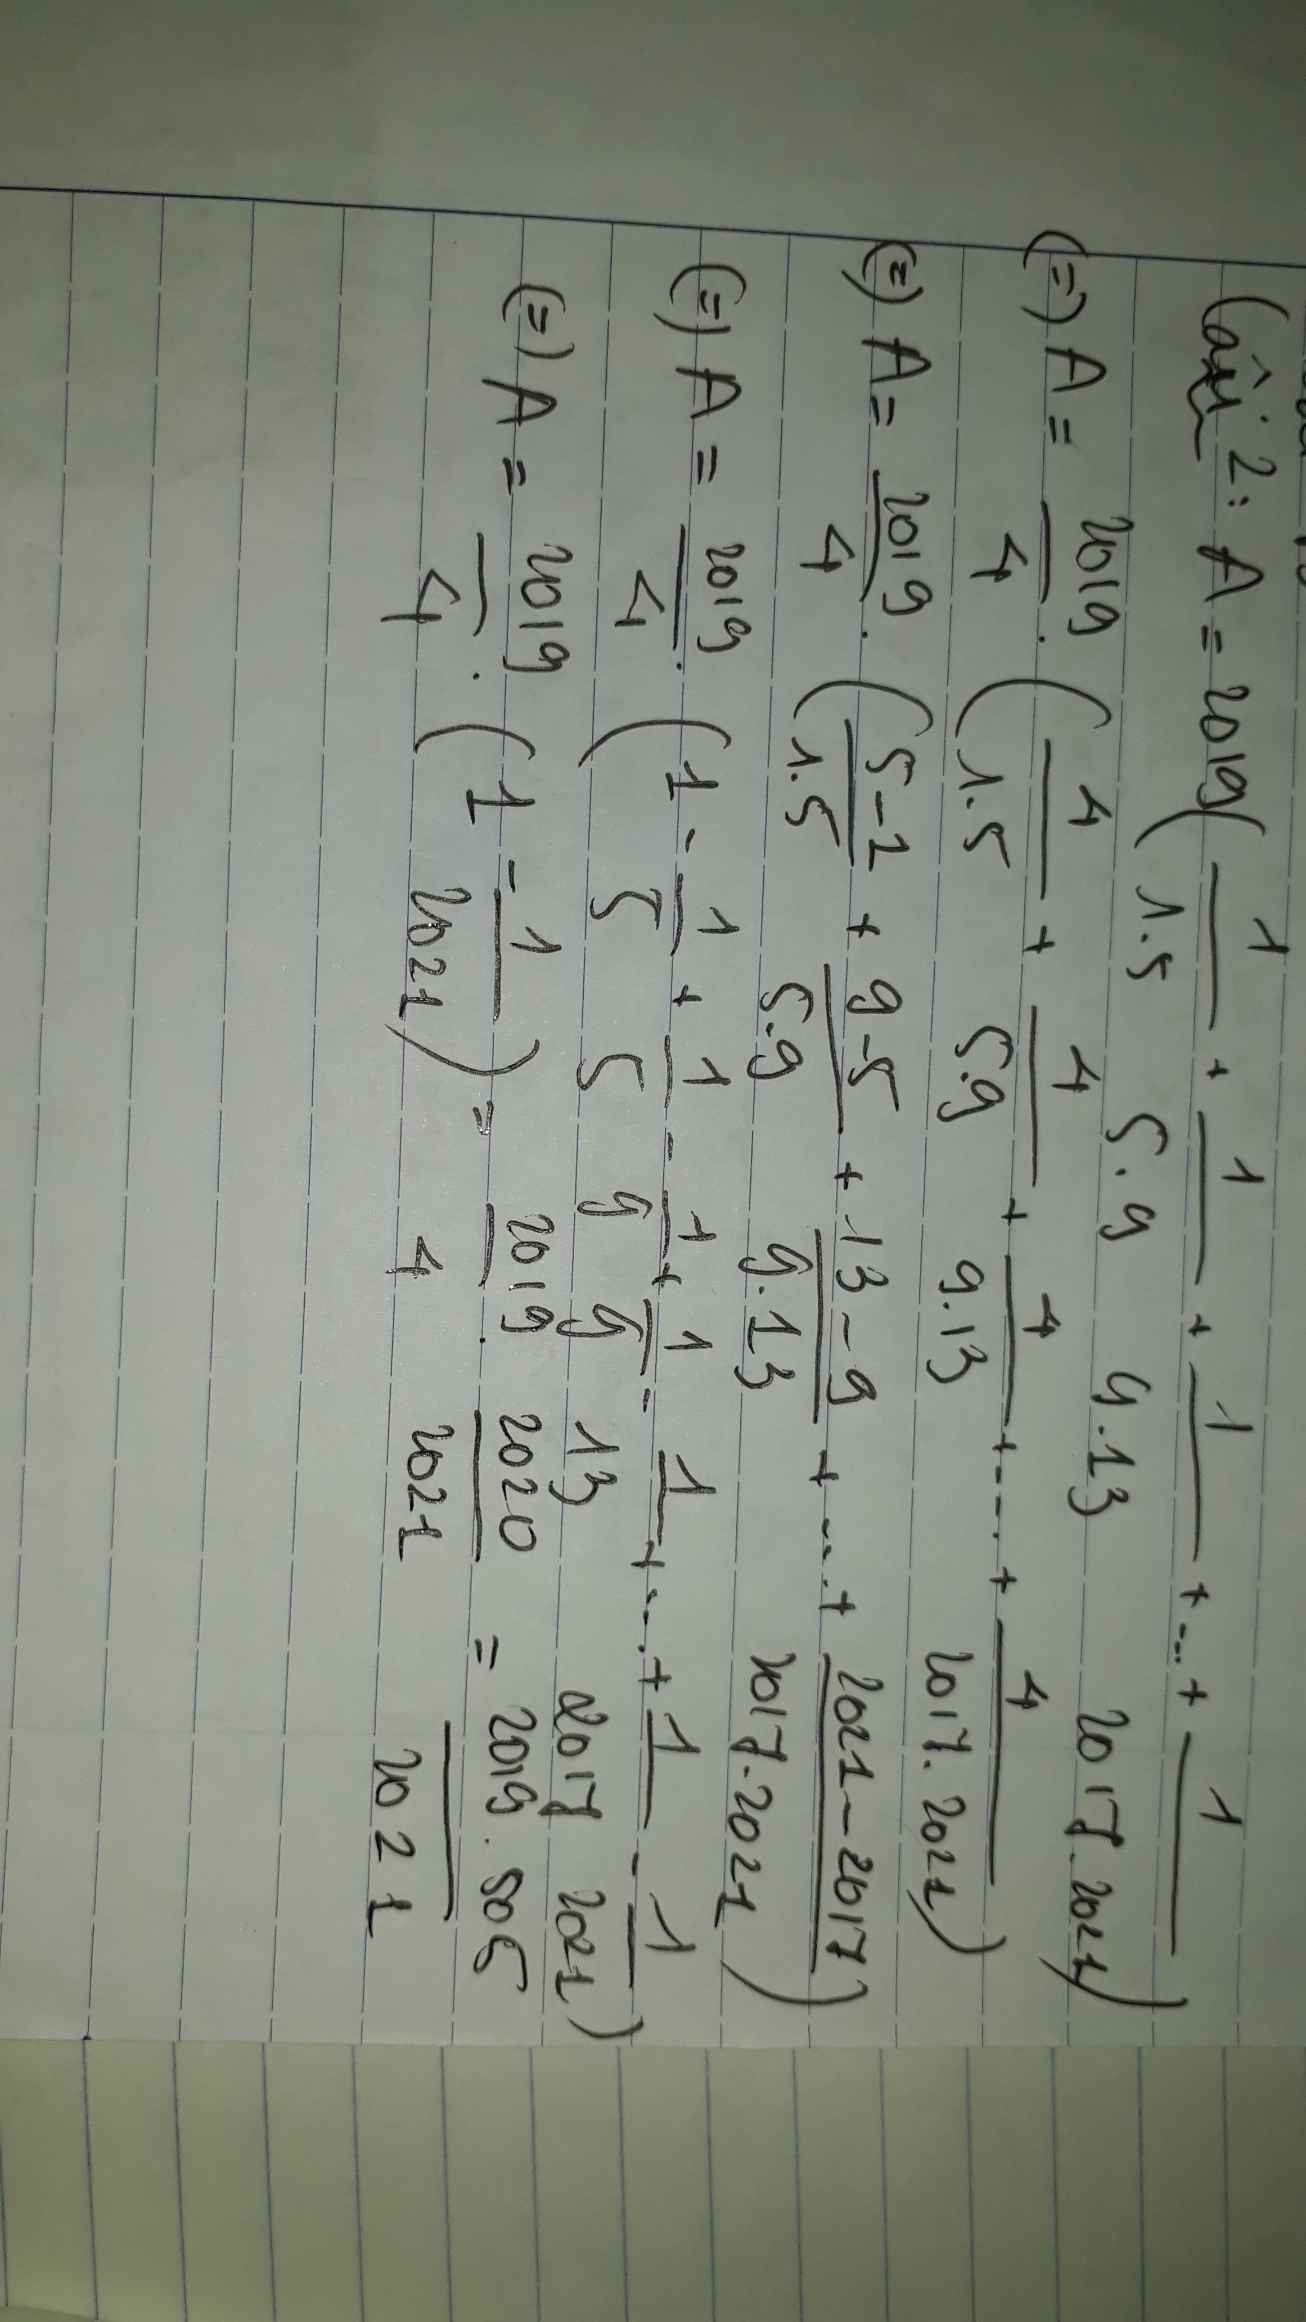 Câu 2: A = 2019(1/1.5 + 1/5.9 + 1/9.13 + ... + 1/2017.2021)
(=) A = 2019/4 . (4/1.5 + 4/5.9 + 4/9.13 + ... + 4/2017.2021)
(=) A = 2019/4 . (5-1/1.5 + 9-5/5.9 + 13-9/9.13 + ... + 2021-2017/2017.2021)
(=) A = 2019/4 . (1 - 1/5 + 1/5 - 1/9 + 1/9 - 1/13 + ... + 1/2017 - 1/2021)
(=) A = 2019/4 . (1 - 1/2021) = 2019/4 . 2020/2021 = 2019.505/2021